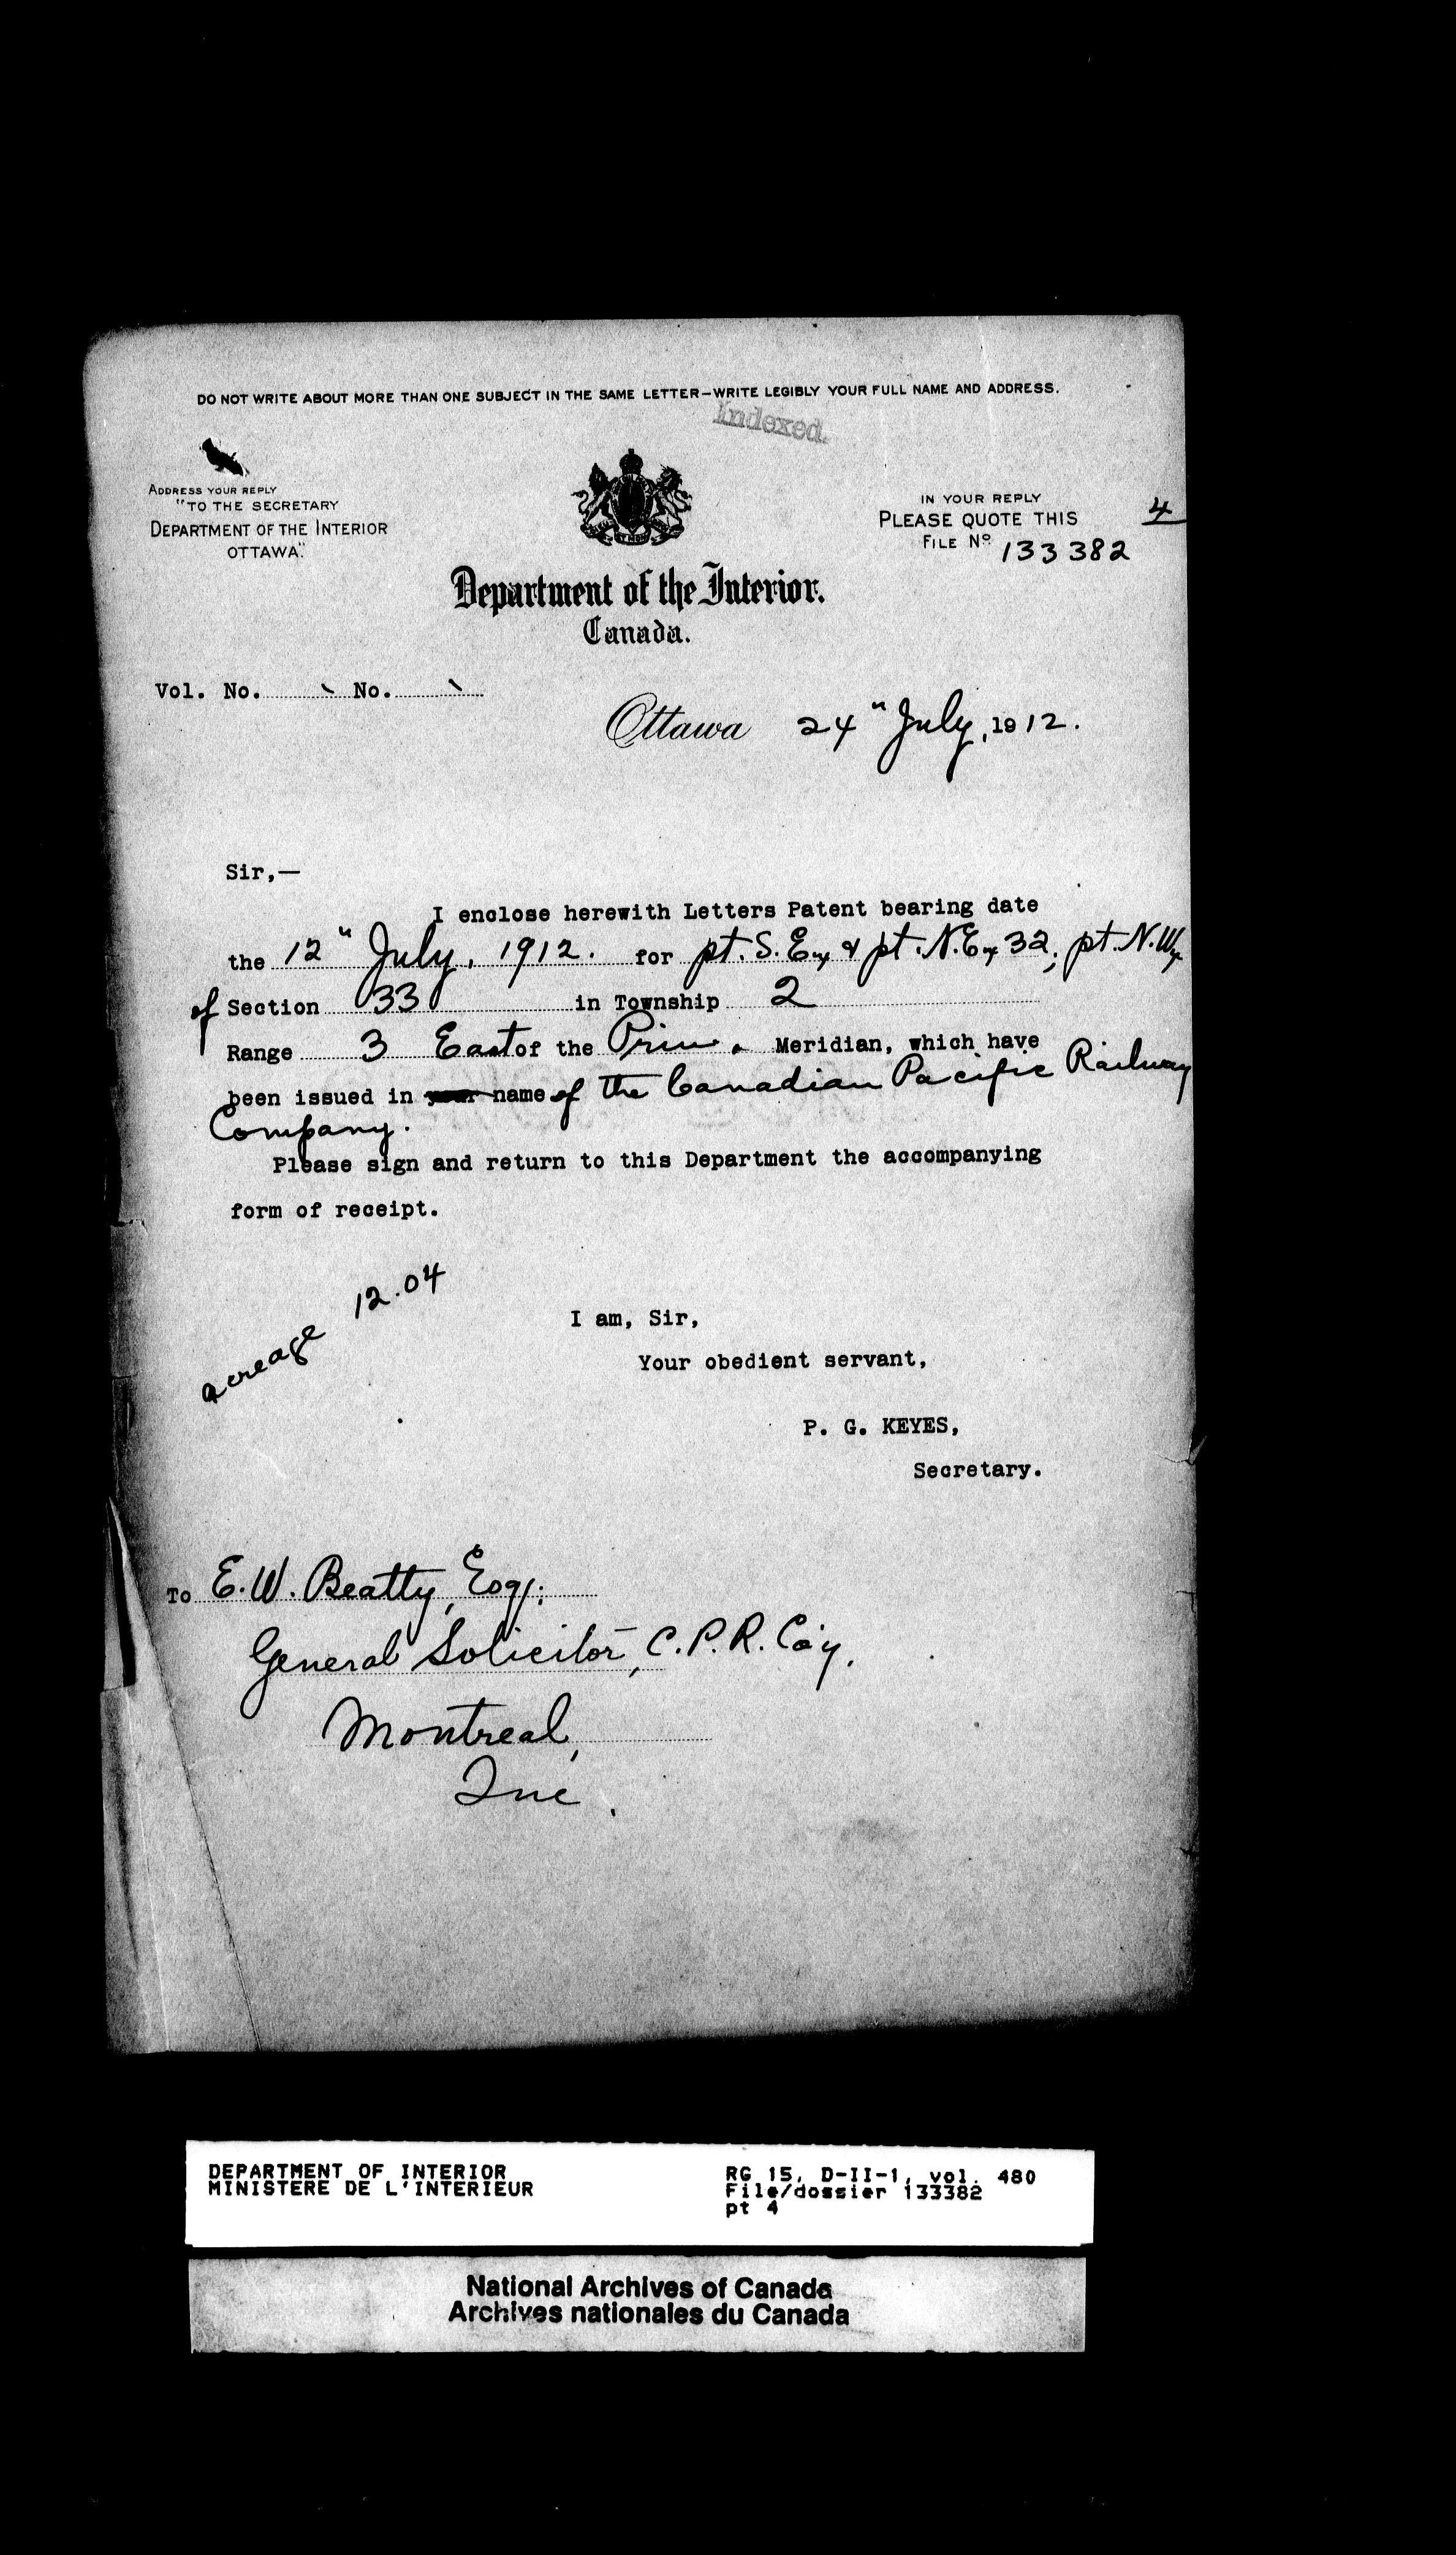 DO NOT WRITE ABOUT MORE THAN ONE SUBJECT IN THE SAME LETTER—WRITE LEGIBLY YOUR FULL NAME AND ADDRESS.
Indexed.
ADDRESS YOUR REPLY
"TO THE SECRETARY
DEPARTMENT OF THE INTERIOR
OTTAWA."
IN YOUR REPLY
PLEASE QUOTE THIS
FILE No. 133382
4
Department of the Interior.
Canada.
Vol. No. No.
Ottawa 24" July, 1912.
Sir,—
I enclose herewith Letters Patent bearing date
the 12" July, 1912. for pt. S.E¼ & pt. N.E¼ 32; pt. N.W¼
of Section 33 in Township 2
Range 3 East of the Prin. Meridian, which have
been issued in your name of the Canadian Pacific Railway
Company.
Please sign and return to this Department the accompanying
form of receipt.
acreage 12.04
I am, Sir,
Your obedient servant,
P. G. KEYES,
Secretary.
To E.W. Beatty, Esq.;
General Solicitor, C.P.R. Co'y,
Montreal,
Que.
DEPARTMENT OF INTERIOR
MINISTERE DE L'INTERIEUR
RG 15, D-II-1, vol. 480
File/dossier 133382
pt 4
National Archives of Canada
Archives nationales du Canada